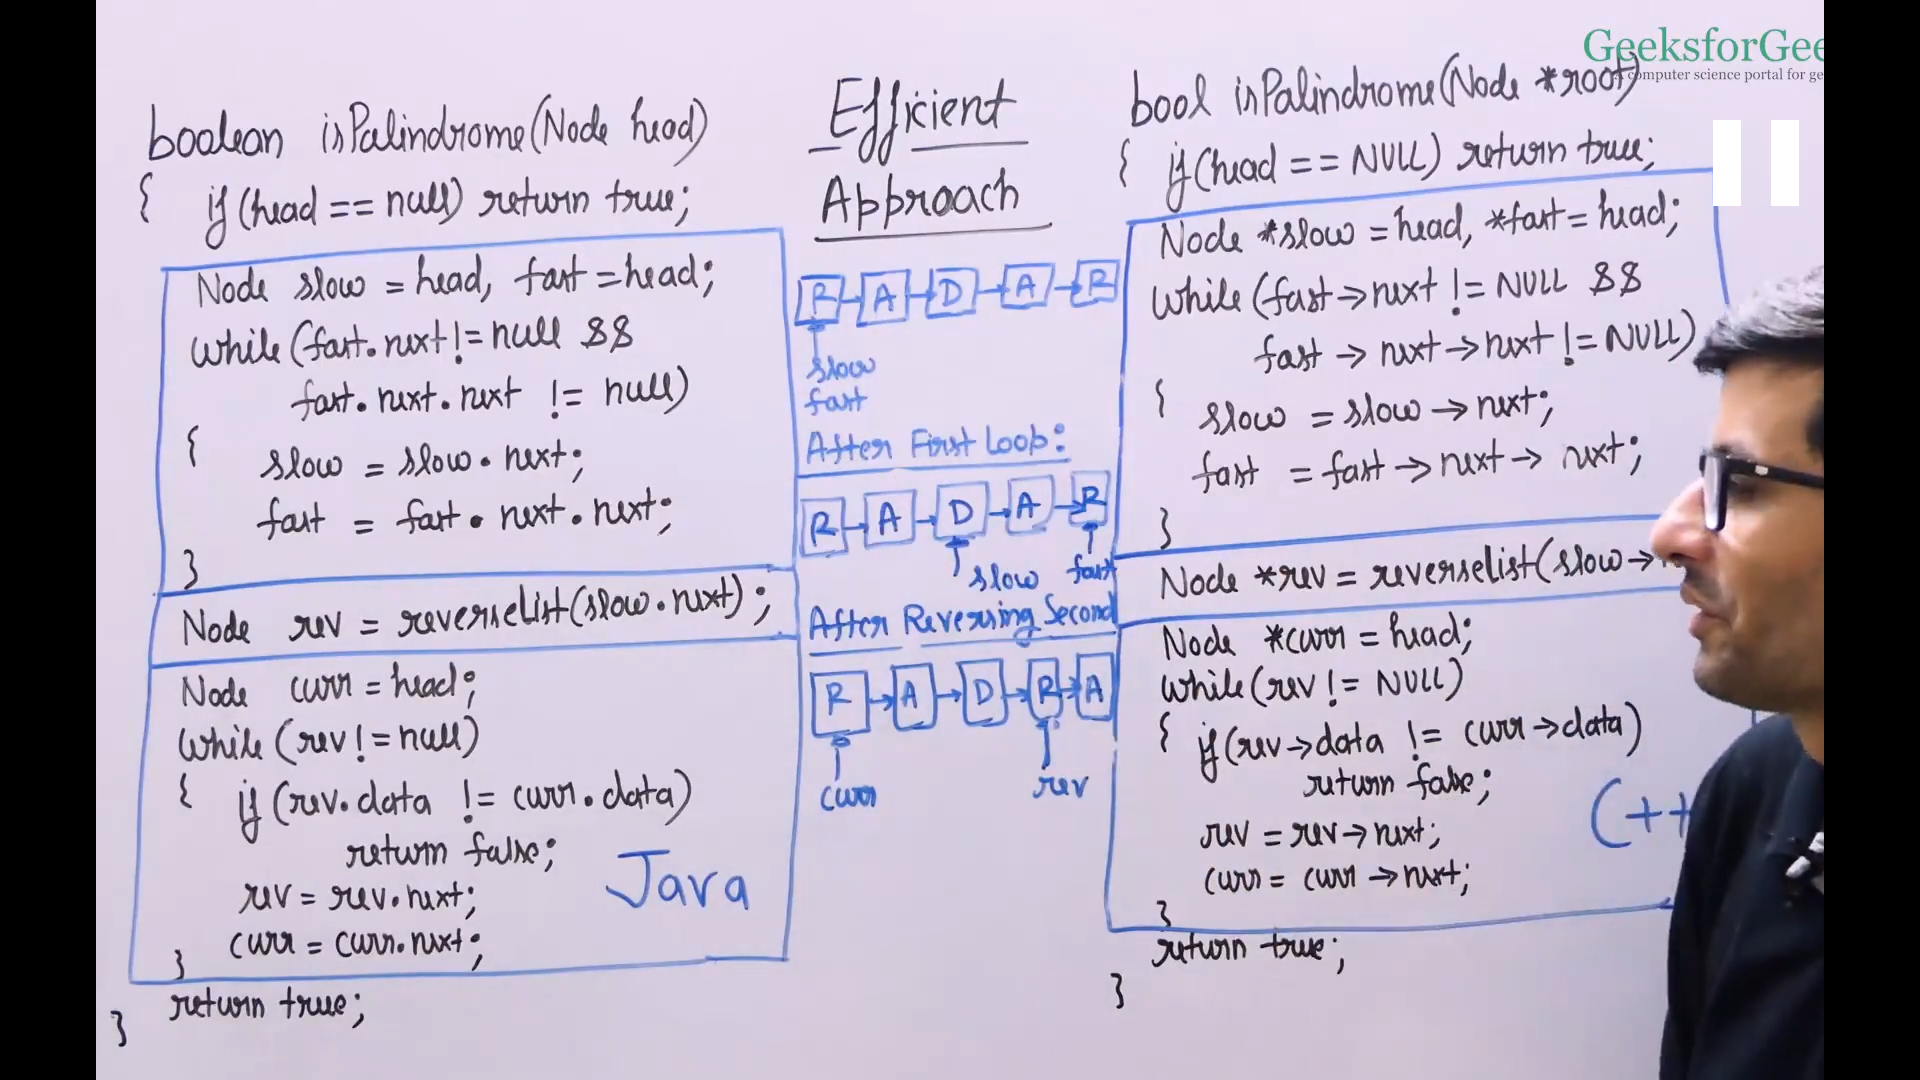 GeeksforGee
A computer science portal for ge
Efficient
Approach
boolean isPalindrome(Node head)
{ if(head == null) return true;
Node slow = head, fast = head;
while(fast.next != null &&
fast.next.next != null)
{
slow = slow.next;
fast = fast.next.next;
}
Node rev = reverseList(slow.next);
Node curr = head;
while(rev != null)
{ if(rev.data != curr.data)
return false;
rev = rev.next;
curr = curr.next;
}
return true;
}
Java
R A D A R
slow
fast
After First Loop:
R A D A R
slow fast
After Reversing Second
R A D R A
curr rev
bool isPalindrome(Node *root)
{ if(head == NULL) return true;
Node *slow = head, *fast = head;
while(fast→next != NULL &&
fast→next→next != NULL)
{ slow = slow→next;
fast = fast→next→next;
}
Node *rev = reverseList(slow→
Node *curr = head;
while(rev != NULL)
{ if(rev→data != curr→data)
return false;
rev = rev→next;
curr = curr→next;
}
return true;
}
C++